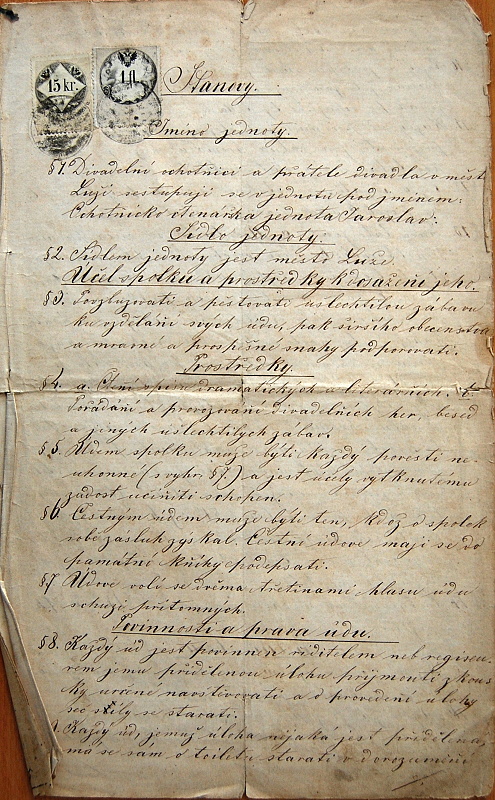 15 kr.
1 fl.
Stanovy.
Jméno jednoty.
§1. Divadelní ochotníci a přátelé divadla v městě
Luži sestupují se v jednotu pod jménem:
Ochotnicko čtenářská jednota Jaroslav.
Sídlo jednoty.
§2. Sídlem jednoty jest město Luže.
Účel spolku a prostředky k dosažení jeho.
§3. Povzbuzovati a pěstovati ušlechtilou zábavu
ku vzdělání svých údů, pak širšího obecenstva
a mravné a prospěšné snahy podporovati.
Prostředky.
§4. a. Čtení spisů dramatických a literárních.
Pořádání a provozování divadelních her, besed
a jiných ušlechtilých zábav.
§5. Údem spolku může býti každý pověsti ne-
úhonné (s vyhr. §7.) a jest účely vytknutému
zadost učiniti schopen.
§6. Čestným údem může býti ten, kdož o spolek
sobě zásluh získal. Čestné údové mají se do
památné knihy podepsati.
§7 Údové volí se dvěma třetinami hlasů údů
schůzi přítomných.
Povinnosti a práva údů.
§8. Každý úd jest povinen ředitelem neb regiseu-
rem jemu přidělenou úlohu přijmouti, zkous
ky určené navštěvovati a o provedení úlohy
seč síly se starati.
Každý úd, jemuž úloha nějaká jest přidělena,
má se sám o toiletu starati v dorozumění